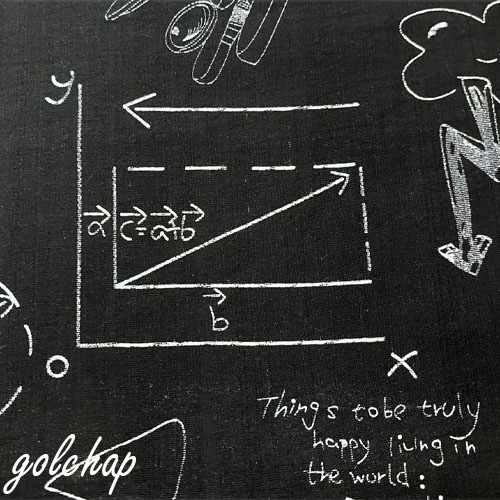 y
a⃗ c⃗=a⃗+b⃗
b⃗
O
x
Things to be truly
happy living in
the world:
golchap